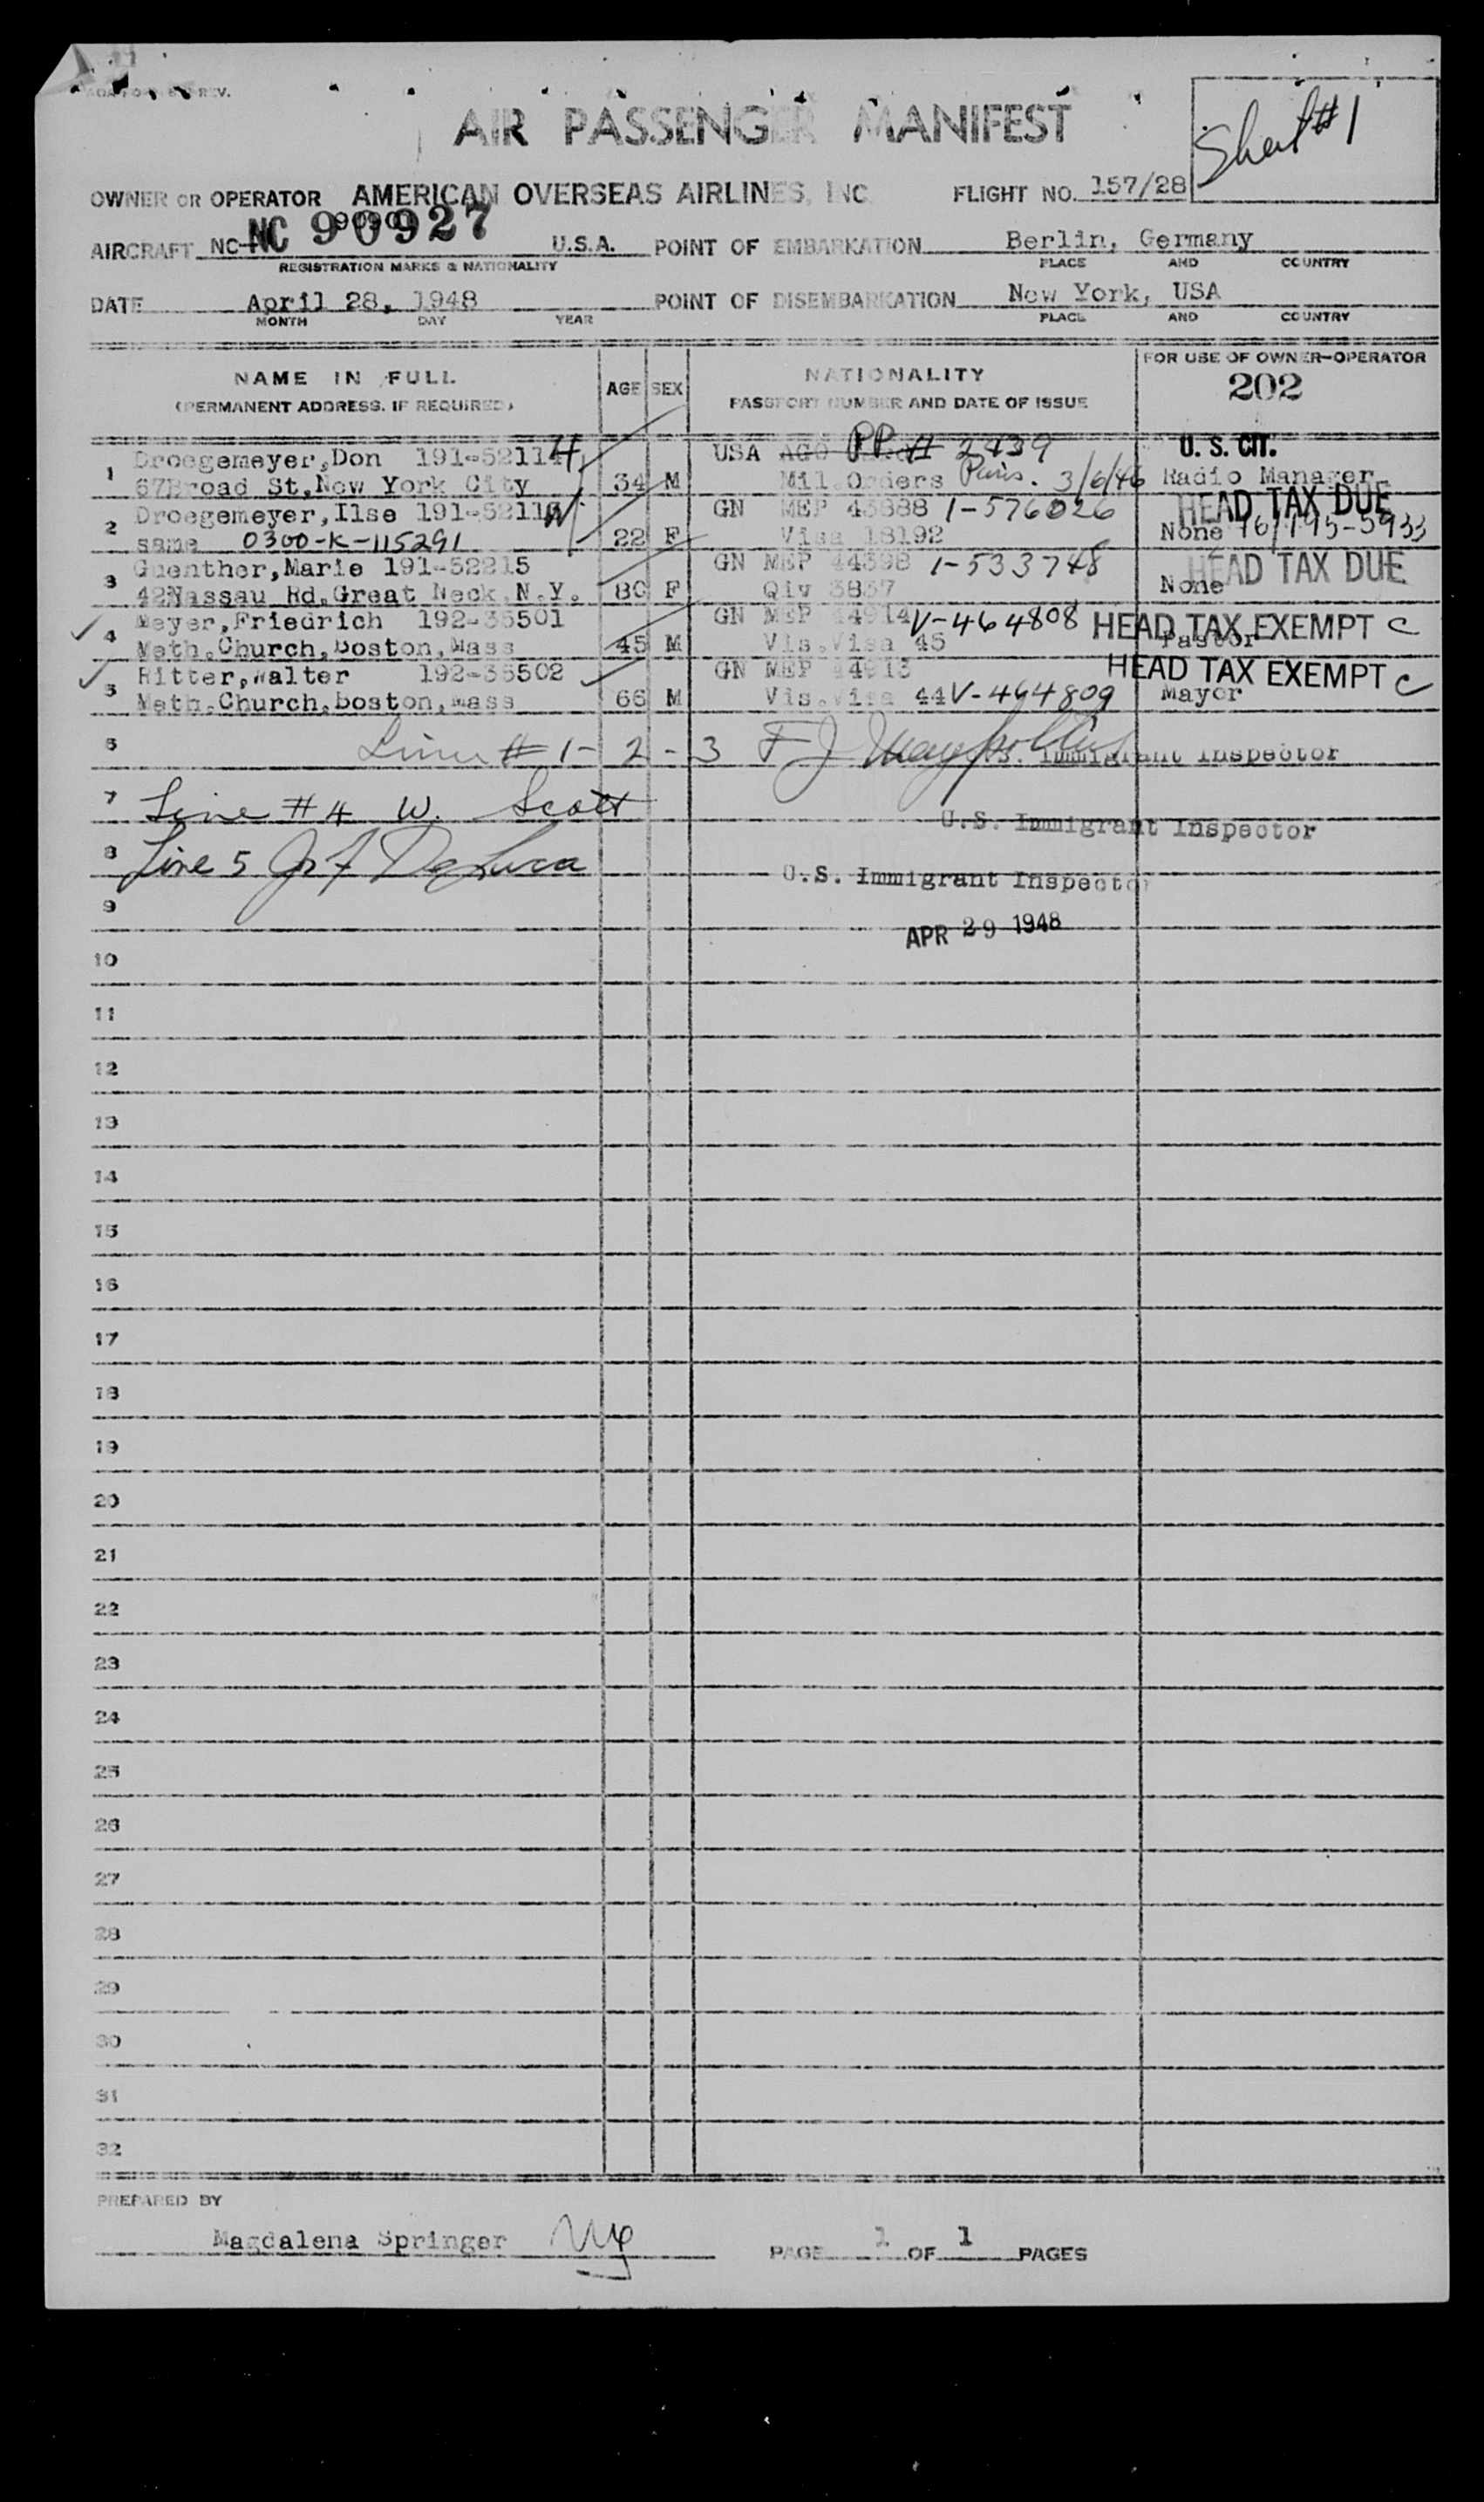 REV.
AIR PASSENGER MANIFEST
Sheet #1
OWNER OR OPERATOR AMERICAN OVERSEAS AIRLINES, INC. FLIGHT NO. 157/28
AIRCRAFT NC NC 90927 U.S.A. POINT OF EMBARKATION Berlin, Germany
REGISTRATION MARKS & NATIONALITY PLACE AND COUNTRY
DATE April 28, 1948 POINT OF DISEMBARKATION New York, USA
MONTH DAY YEAR PLACE AND COUNTRY
NAME IN FULL AGE SEX NATIONALITY FOR USE OF OWNER-OPERATOR
(PERMANENT ADDRESS, IF REQUIRED) PASSPORT NUMBER AND DATE OF ISSUE 202
1 Droegemeyer,Don 191-52114 USA AGO PP # 2439 U. S. CIT.
67Broad St,New York City 34 M Mil.Orders Paris. 3/6/46 Radio Manager
2 Droegemeyer,Ilse GN MEP 1-576026 HEAD TAX DUE
same 0300-K-115291 22 F Visa 18192 None
3 Guenther,Marie 191-52215 GN MEP 1-533748 HEAD TAX DUE
42Nassau Rd,Great Neck,N.Y. 80 F Qiv 3837 None
4 Meyer,Friedrich 192-35501 GN MEP 44914 V-464808 HEAD TAX EXEMPT C
Meth.Church,Boston,Mass 45 M Vis.Visa 45 Pastor
5 Ritter,Walter 192-35502 GN MEP 44913 HEAD TAX EXEMPT C
Meth.Church,Boston,Mass 66 M Vis.Visa 44 V-464809 Mayor
6 Line # 1 - 2 - 3 F J Immigrant Inspector
7 Line # 4 W. Scott
U.S. Immigrant Inspector
8 Line 5 DeLuca
U.S. Immigrant Inspector
9
APR 29 1948
10
11
12
13
14
15
16
17
18
19
20
21
22
23
24
25
26
27
28
29
30
31
32
PREPARED BY
Magdalena Springer PAGE 1 OF 1 PAGES